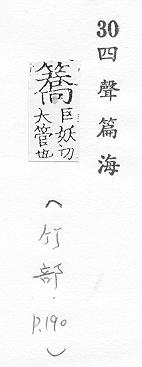 30 四聲篇海
簥
巨妖切
大管也
(竹部. P.190)